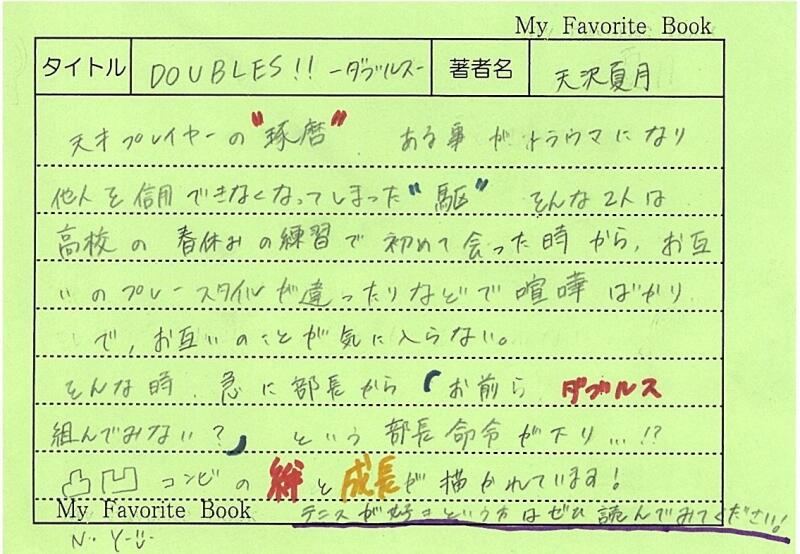 My Favorite Book
タイトル DOUBLES!! -ダブルス- 著者名 天沢夏月
天才プレイヤーの"琢磨" ある事がトラウマになり
他人を信用できなくなってしまった"駆" そんな2人は
高校の春休みの練習で初めて会った時から,お互
いのプレースタイルが違ったりなどで喧嘩ばかり
で,お互いのことが気に入らない。
そんな時 急に部長から「お前ら ダブルス
組んでみない?」という部長命令が下り…!?
凸凹コンビの絆と成長が描かれています!
My Favorite Book テニスが好きという方はぜひ読んでみてください!
N.Y